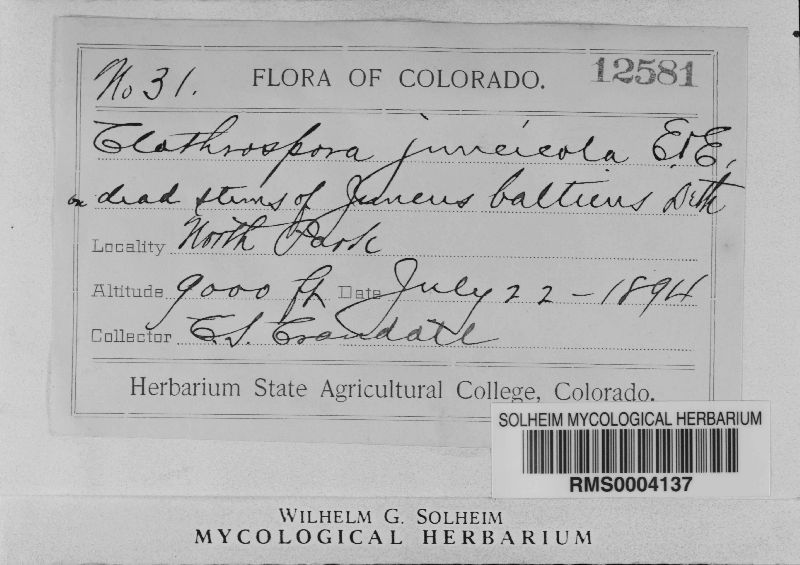 No 31. FLORA OF COLORADO. 12581
Clathrospora juncicola E. & E.
on dead stems of Juncus balticus Deth
Locality North Park
Altitude 9000 ft Date July 22 - 1894
Collector C.S. Crandall
Herbarium State Agricultural College, Colorado.
SOLHEIM MYCOLOGICAL HERBARIUM
RMS0004137
WILHELM G. SOLHEIM
MYCOLOGICAL HERBARIUM